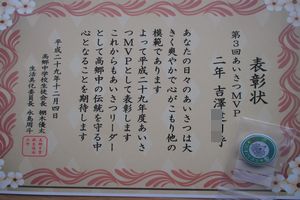 表彰状
第3回あいさつMVP
二年 吉澤
あなたの日々のあいさつは大
きく爽やかで心がこもり他の
模範であります
よって平成二十九年度あいさ
つMVPとして表彰します
これからもあいさつリーダー
として高郷中の伝統を守る中
心となることを期待します
平成二十九年十二月四日
高郷中学校生徒会長 栁木優太
生活美化委員長 永島周斗